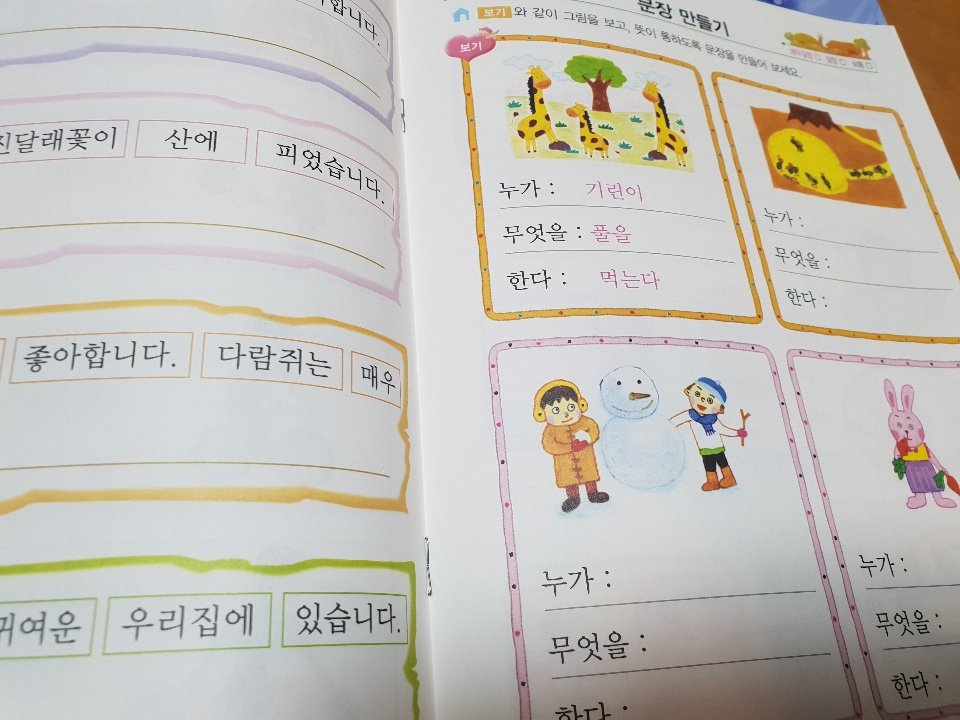 합니다.
진달래꽃이 산에 피었습니다.
좋아합니다. 다람쥐는 매우
귀여운 우리집에 있습니다.
문장 만들기
보기 와 같이 그림을 보고, 뜻이 통하도록 문장을 만들어 보세요.
보기
누가 : 기린이
무엇을 : 풀을
한다 : 먹는다
누가 :
무엇을 :
한다 :
누가 :
무엇을 :
한다 :
누가 :
무엇을 :
한다 :